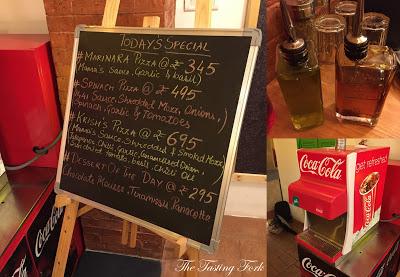 TODAY'S SPECIAL
# MARINARA PIZZA @ ₹ 345
(Mama's Sauce, Garlic & basil)
# SPINACH PIZZA @ ₹ 495
Sauce, Shredded Mozz, Onions,
Spinach, Garlic & Tomatoes)
# KRISH'S PIZZA @ ₹ 695
Mama's Sauce, Shredded & Smoked Mozz,
Jalapenos, Chilli, garlic, Caramellised Onion,
Sun dried tomato, basil, Chilli Oil
# DESSERT OF THE DAY @ ₹ 295
Chocolate Mousse, Tiramissu, Panacotta
The Tasting Fork
Coca-Cola
get refreshed
Coca-Cola
Coca-Cola